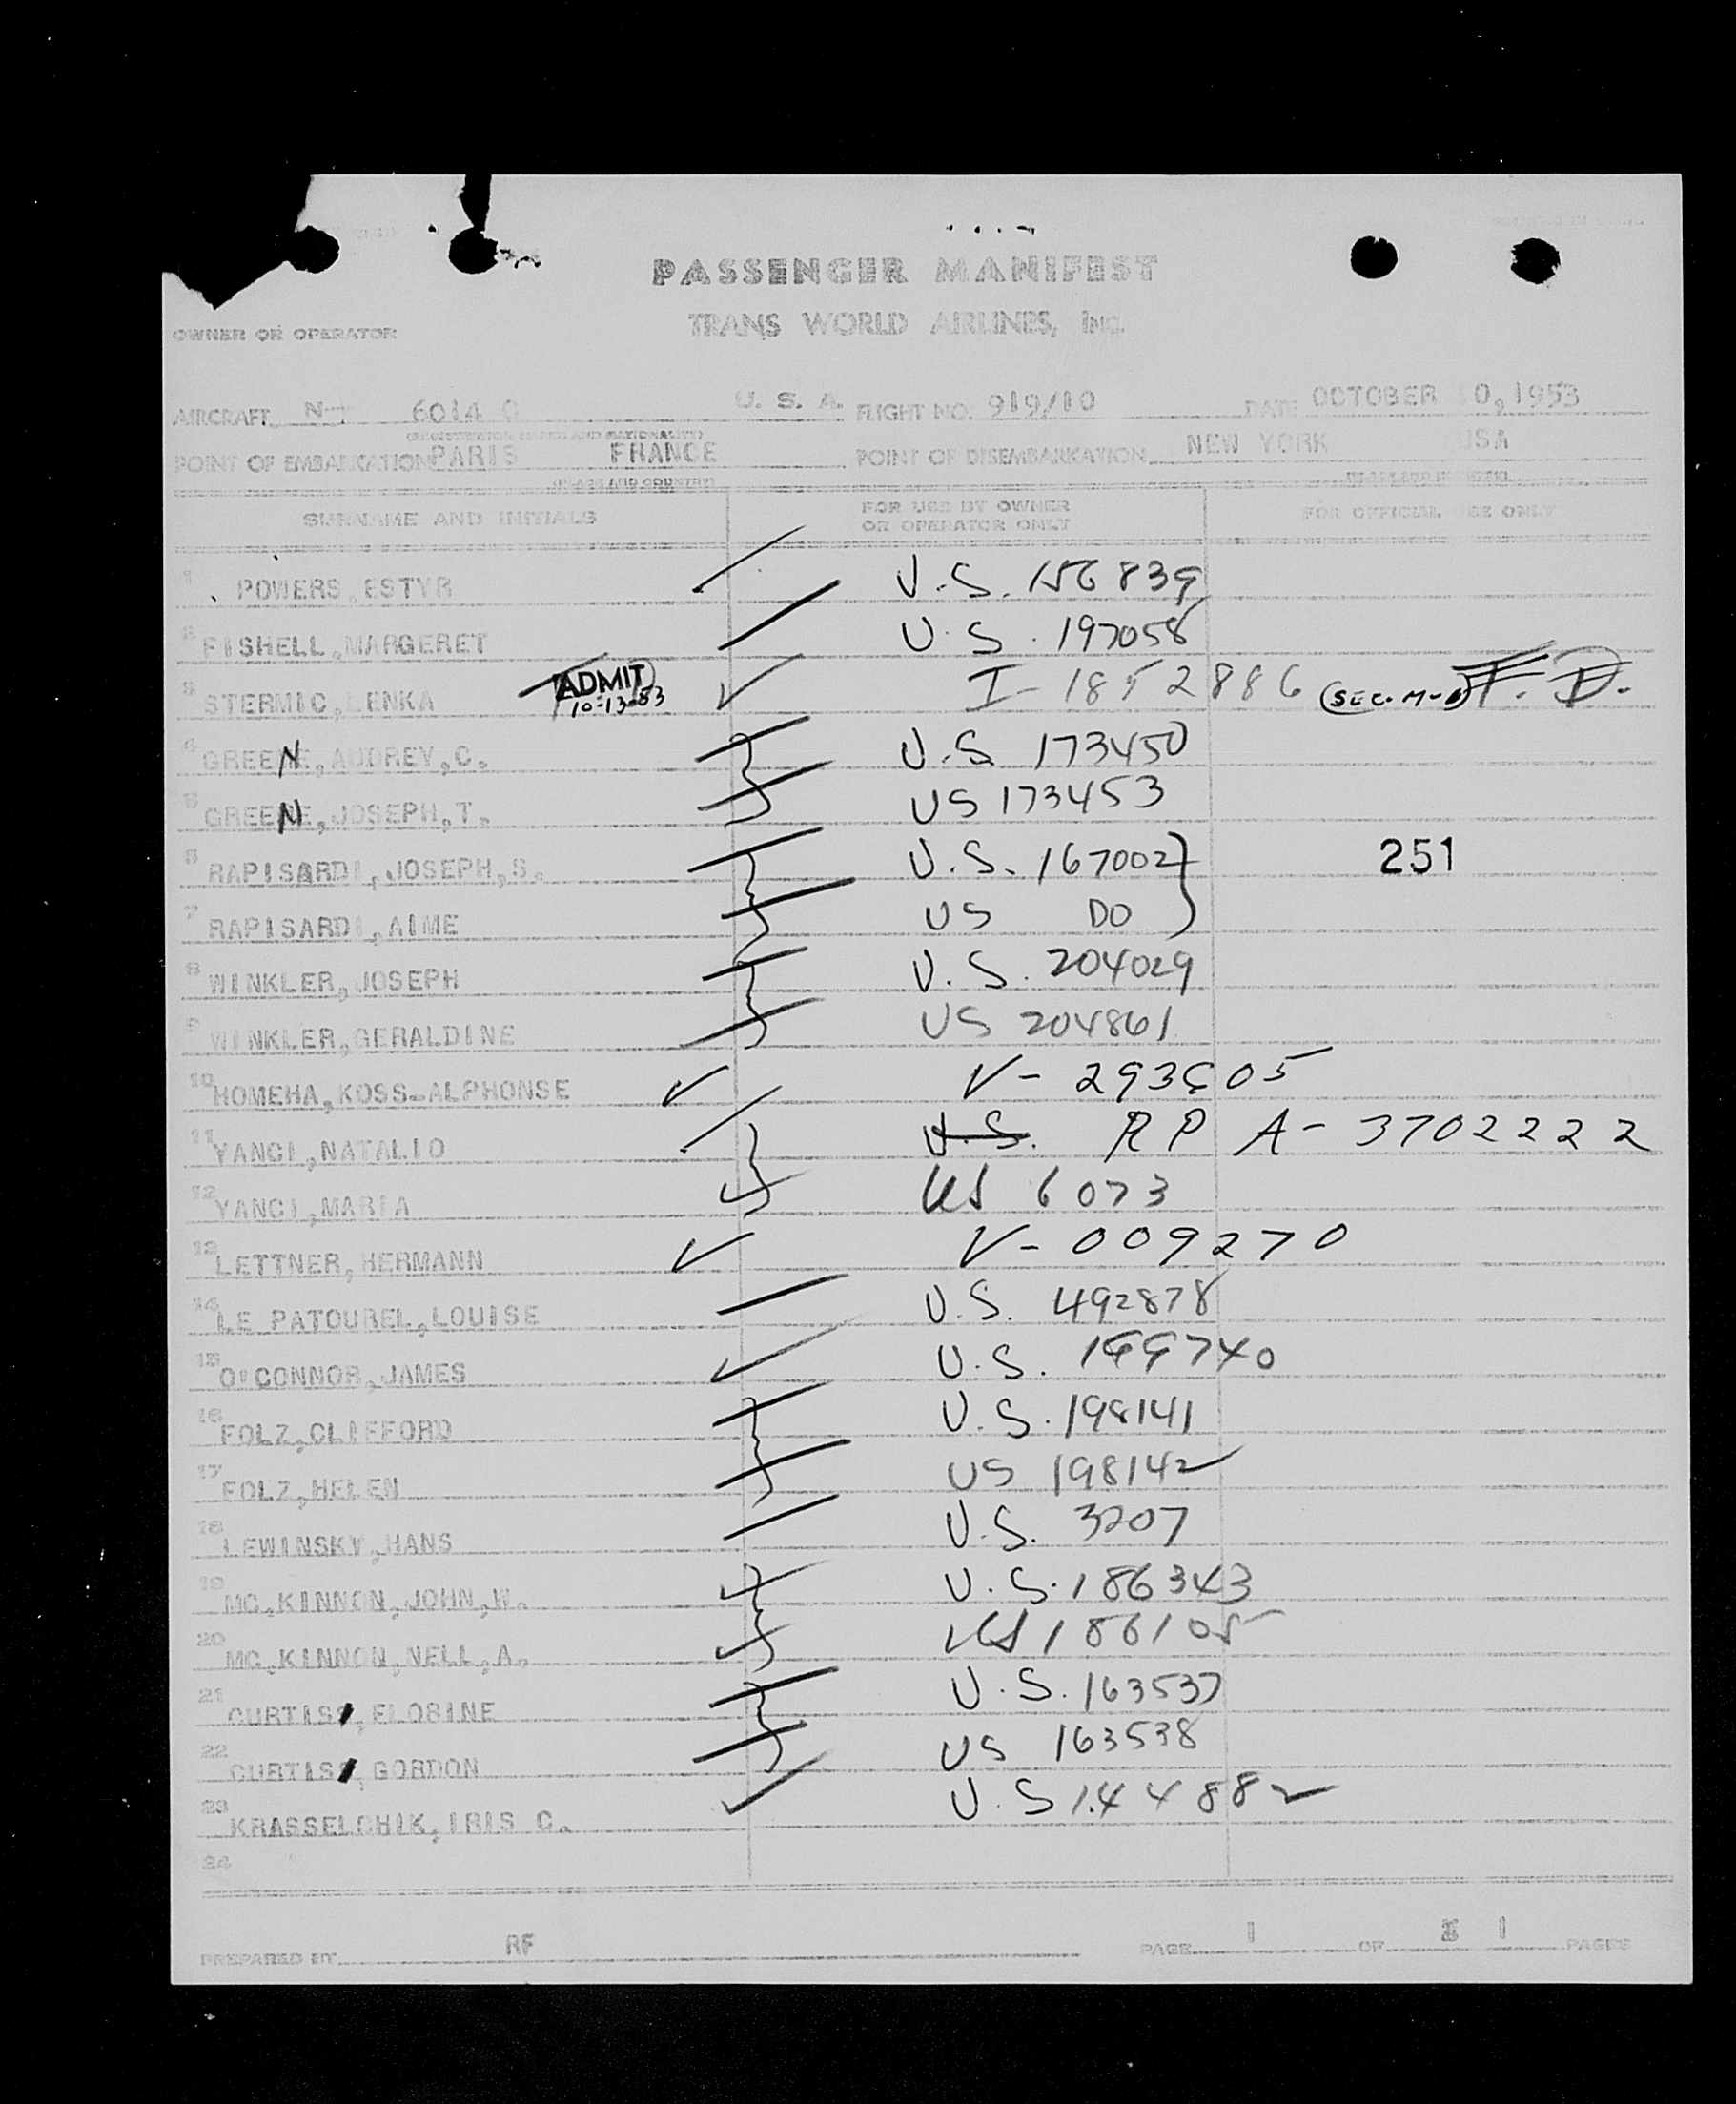 PASSENGER MANIFEST
TRANS WORLD AIRLINES, INC.
OWNER OR OPERATOR
AIRCRAFT N- 6014 C U. S. A. FLIGHT NO. 919/10 DATE OCTOBER 10,1953
(REGISTRATION MARKS AND NATIONALITY)
POINT OF EMBARKATION PARIS FRANCE POINT OF DISEMBARKATION NEW YORK USA
(PLACE AND COUNTRY) (PLACE AND COUNTRY)
SURNAME AND INITIALS FOR USE BY OWNER OR OPERATOR ONLY FOR OFFICIAL USE ONLY
1 POWERS,ESTYR U.S. 156839
2 FISHELL,MARGERET U.S. 197058
3 STERMIC,LENKA ADMIT 10-13-53 I-1852886 (SEC. M-6) F.D.
4 GREEN,AUDREY,C. U.S 173450
5 GREEN,JOSEPH,T. US 173453
6 RAPISARDI,JOSEPH,S. U.S. 167002 251
7 RAPISARDI,AIME US DO
8 WINKLER,JOSEPH U.S. 204029
9 WINKLER,GERALDINE US 204861
10 HOMEHA,KOSS-ALPHONSE V-293905
11 YANCI,NATALIO U.S. RP A-3702222
12 YANCI,MARIA US 6073
13 LETTNER,HERMANN V-009270
14 LE PATOUREL,LOUISE U.S. 492878
15 O'CONNOR,JAMES U.S. 199740
16 FOLZ,CLIFFORD U.S. 198141
17 FOLZ,HELEN US 198142
18 LEWINSKY,HANS U.S. 3207
19 MC.KINNON,JOHN,W. U.S. 186343
20 MC.KINNON,NELL,A. US 186105
21 CURTIS,FLORINE U.S. 163537
22 CURTIS,GORDON US 163538
23 KRASSELCHIK,IRIS C. U.S 144882
24
PREPARED BY RF PAGE 1 OF 1 PAGES